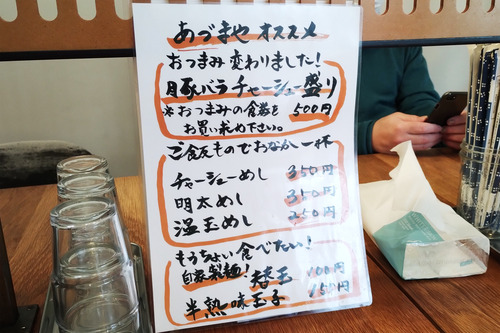 あづまや オススメ
おつまみ変わりました!
豚バラチャーシュー盛り
※おつまみの食券を 500円
お買い求め下さい。
ご飯ものでおなか一杯
チャーシューめし 350円
明太めし 350円
温玉めし 250円
もうちょい食べたい!
自家製麺! 替玉 100円
半熟味玉子 150円